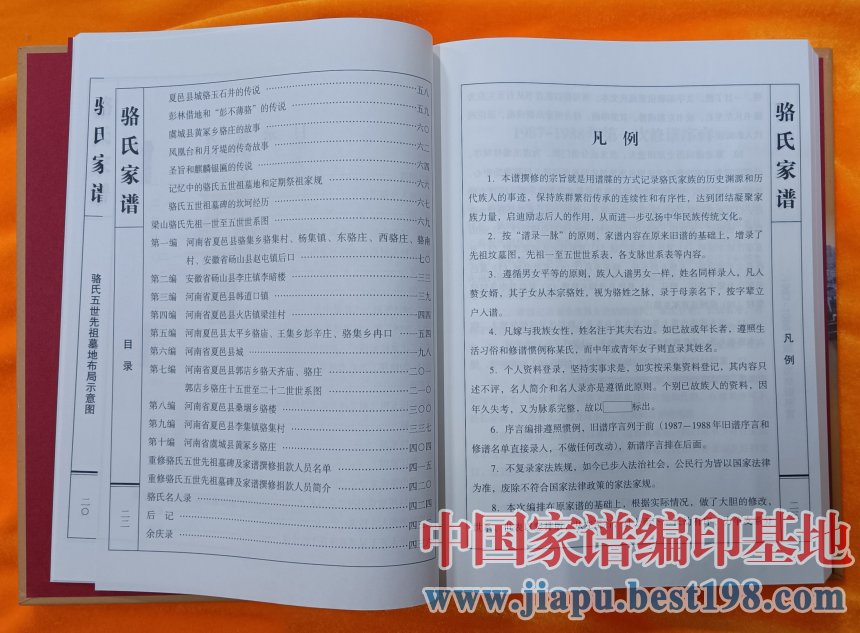 骆氏家谱
骆氏五世先祖墓地布局示意图
二〇
骆氏家谱
目录
二二
夏邑县城骆玉石井的传说 五八
彭林借地和“彭不薄骆”的传说 五九
虞城县黄冢乡骆庄的故事 六〇
凤凰台和月牙堤的传奇故事 六二
圣旨和麒麟银匾的传说 六四
记忆中的骆氏五世祖墓地和定期祭祖家规 六六
骆氏五世祖墓碑的坎坷经历 六七
梁山骆氏先祖一世至五世世系图 六九
第一编 河南省夏邑县骆集乡骆集村、杨集镇、东骆庄、西骆庄、骆南
村、安徽省砀山县赵屯镇后口 七〇
第二编 安徽省砀山县李庄镇李暗楼 一三三
第三编 河南省夏邑县韩道口镇 一三九
第四编 河南省夏邑县火店镇梁洼村 一四四
第五编 河南省夏邑县太平乡骆庙、王集乡彭辛庄、骆集乡冉口 一五四
第六编 河南省夏邑县城 一九八
第七编 河南省夏邑县郭店乡骆天齐庙、骆庄 二〇一
郭店乡骆庄十五世至二十二世世系图 二一〇
第八编 河南省夏邑县桑堌乡骆楼 三〇〇
第九编 河南省夏邑县李集镇骆集村 三三七
第十编 河南省虞城县黄冢乡骆庄 四〇四
重修骆氏五世先祖墓碑及家谱撰修捐款人员名单 四一五
重修骆氏五世先祖墓碑及家谱撰修捐款人员简介 四二〇
骆氏名人录 四二四
后记
余庆录
凡例
1．本谱撰修的宗旨就是用谱牒的方式记录骆氏家族的历史渊源和历
代族人的事迹，保持族群繁衍传承的连续性和有序性，达到团结凝聚家
族力量，启迪励志后人的作用，从而进一步弘扬中华民族传统文化。
2．按“谱录一脉”的原则，家谱内容在原来旧谱的基础上，增录了
先祖坟墓图，先祖一至五世世系表，各支脉世系表等内容。
3．遵循男女平等的原则，族人入谱男女一样，姓名同样录入，凡人
赘女婿，其子女从本宗骆姓，视为骆姓之脉，录于母亲名下，按字辈立
户入谱。
4．凡嫁与我族女性，姓名注于其夫右边。如已故或年长者，遵照生
活习俗和修谱惯例称某氏，而中年或青年女子则直录其姓名。
5．个人资料登录，坚持实事求是，如实按采集资料登记，其内容只
述不评，名人简介和名人录亦是遵循此原则。个别已故族人的资料，因
年久失考，又为脉系完整，故以 标出。
6．序言编排遵照惯例，旧谱序言列于前（1987－1988年旧谱序言和
修谱名单直接录入，不做任何改动），新谱序言排在后面。
7．不复录家法族规，如今已步入法治社会，公民行为皆以国家法律
为准，废除不符合国家法律政策的家法家规。
8．本次编排在原家谱的基础上，根据实际情况，做了大胆的修改，
骆氏家谱
凡例
中国家谱编印基地
www.jiapu.best198.com